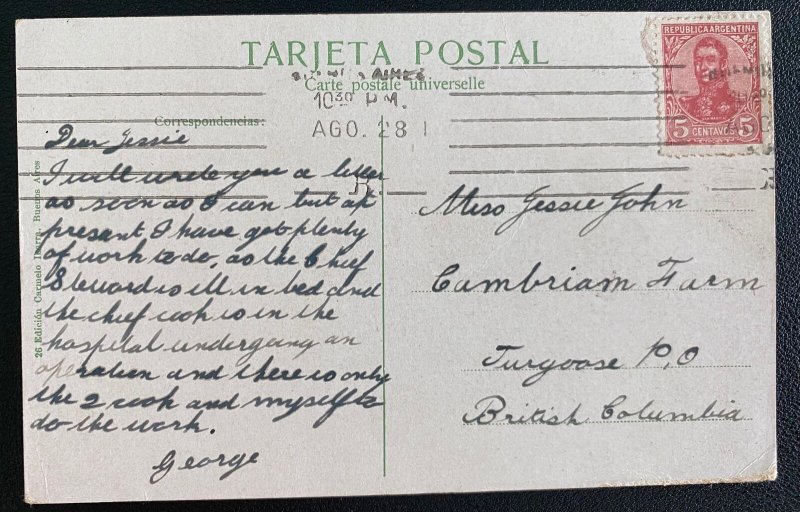 TARJETA POSTAL
Carte postale universelle
Correspondencias:
AIRES
10 30 P.M.
AGO. 28 1
REPUBLICA ARGENTINA
5 CENTAVOS 5
26 Edición Carmelo Ibarra. Buenos Aires
Dear Jessie
I will write you a letter
as soon as I can but at
present I have got plenty
of work to do, as the Chief
Steward is ill in bed and
the chief cook is in the
hospital undergoing an
operation and there is only
the 2 cook and myself to
do the work.
George
Miss Jessie John
Cambriam Farm
Turgoose P.O
British Columbia